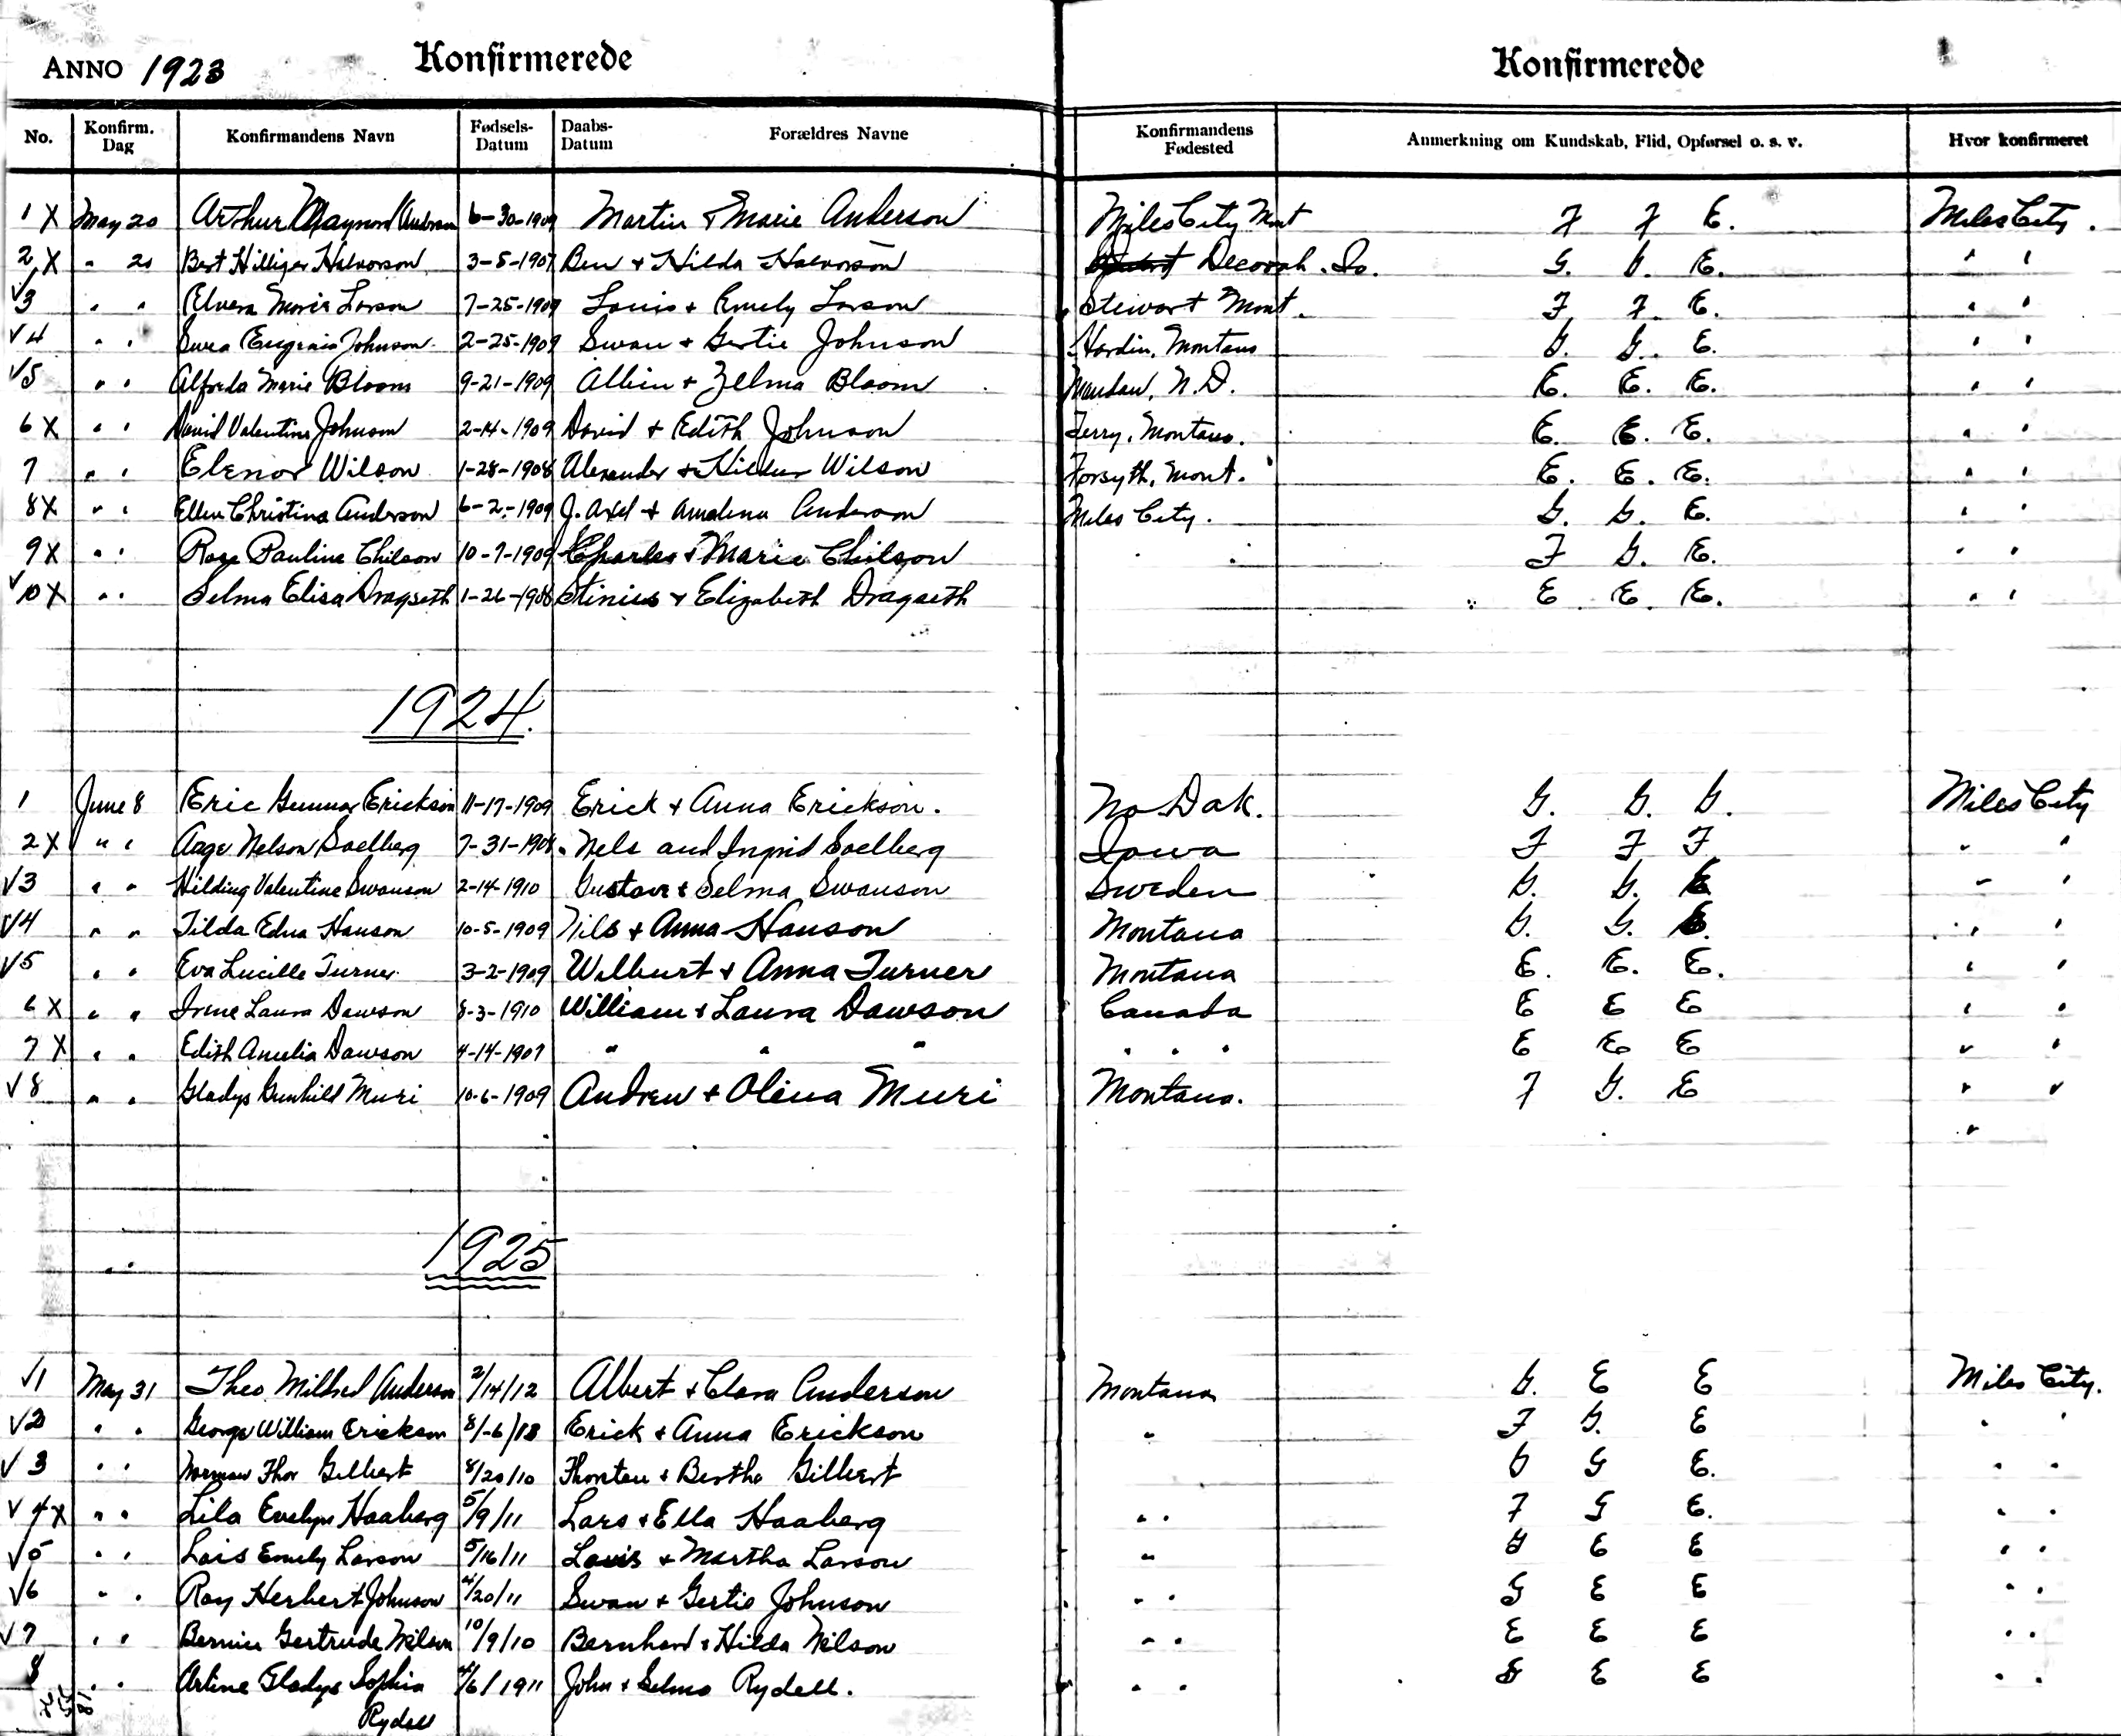 ANNO 1923 Konfirmerede Konfirmerede
No. Konfirm. Dag Konfirmandens Navn Fødsels-Datum Daabs-Datum Forældres Navne Konfirmandens Fødested Anmerkning om Kundskab, Flid, Opførsel o. s. v. Hvor konfirmeret
1 X May 20 Arthur Maynord Anderson 6-30-1909 Martin + Marie Anderson Miles City Mont F F E. Miles City.
2 X " 20 Bert Hilliger Halvorson 3-5-1907 Ben + Hilda Halvorson Decorah. Io. G. G. E. " "
√3 " " Elvera Marie Larson 7-25-1909 Louis + Emely Larson Stewart Mont. F F. E. " "
√4 " " Swea Johnson. 2-25-1909 Swan + Gertie Johnson Hardin, Montana G. G. E. " "
√5 " " Alfreda Marie Bloom 9-21-1909 Albin + Zelma Bloom Mandan, N.D. E. E. E. " "
6 X " " David Valentine Johnson 2-14-1909 David + Edith Johnson Terry, Montana. E. E. E. " "
7 " " Elenor Wilson 1-28-1908 Alexander + Hildur Wilson Forsyth, Mont. E. E. E. " "
8 X " " Ellen Christina Anderson 6-2-1909 J. Axel + Amalena Anderson Miles City. G. G. E. " "
9 X " " Rose Pauline Chilson 10-7-1909 Charles + Marie Chilson " " F G. E. " "
√10 X " " Selma Elisa Dragseth 1-26-1908 Stinius + Elizabeth Dragseth " E E. E. " "
1924.
1 June 8 Eric Gunnar Erickson 11-17-1909 Erick + Anna Erickson. No Dak. G. G. G. Miles City
2 X " " Aage Nelson Soelberg 7-31-1908 Nels and Ingrid Soelberg Iowa F F F " "
√3 " " Hilding Valentine Swanson 2-14-1910 Gustave + Selma Swanson Sweden G. G. E " "
√4 " " Tilda Edna Hanson 10-5-1909 Nils + Anna Hanson Montana G. G. E. " "
√5 " " Eva Lucille Turner 3-2-1909 Wilburt + Anna Turner Montana E. E. E. " "
6 X " " Irene Laura Dawson 8-3-1910 William + Laura Dawson Canada E E E " "
7 X " " Edith Amelia Dawson 4-14-1907 " " " " " " E E E " "
√8 " " Gladys Gunhild Muri 10-6-1909 Andrew + Olina Muri Montana. F G. E " "
"
1925
" "
√1 May 31 Theo Mildred Anderson 2/14/12 Albert + Clara Anderson Montana G. E E Miles City.
√2 " " George William Erickson Erick + Anna Erickson " F G. E " "
√3 " " Norman Thor Gilbert 8/20/10 Thorsten + Bertha Gilbert G G E. " "
√4 X " " Lila Evelyn Haaberg 5/9/11 Lars + Ella Haaberg " " F G E. " "
√5 " " Lois Emily Larson 5/16/11 Louis + Martha Larson " G E E " "
√6 " " Roy Herbert Johnson 4/20/11 Swan + Gertie Johnson " " G E E " "
√7 " " Bernice Gertrude Nilson 10/9/10 Bernhard + Hilda Nilson " " E E E " "
8 " " Arline Gladys Sophia 4/6/1911 John + Selma Rydell. " " G E E " "
Rydell